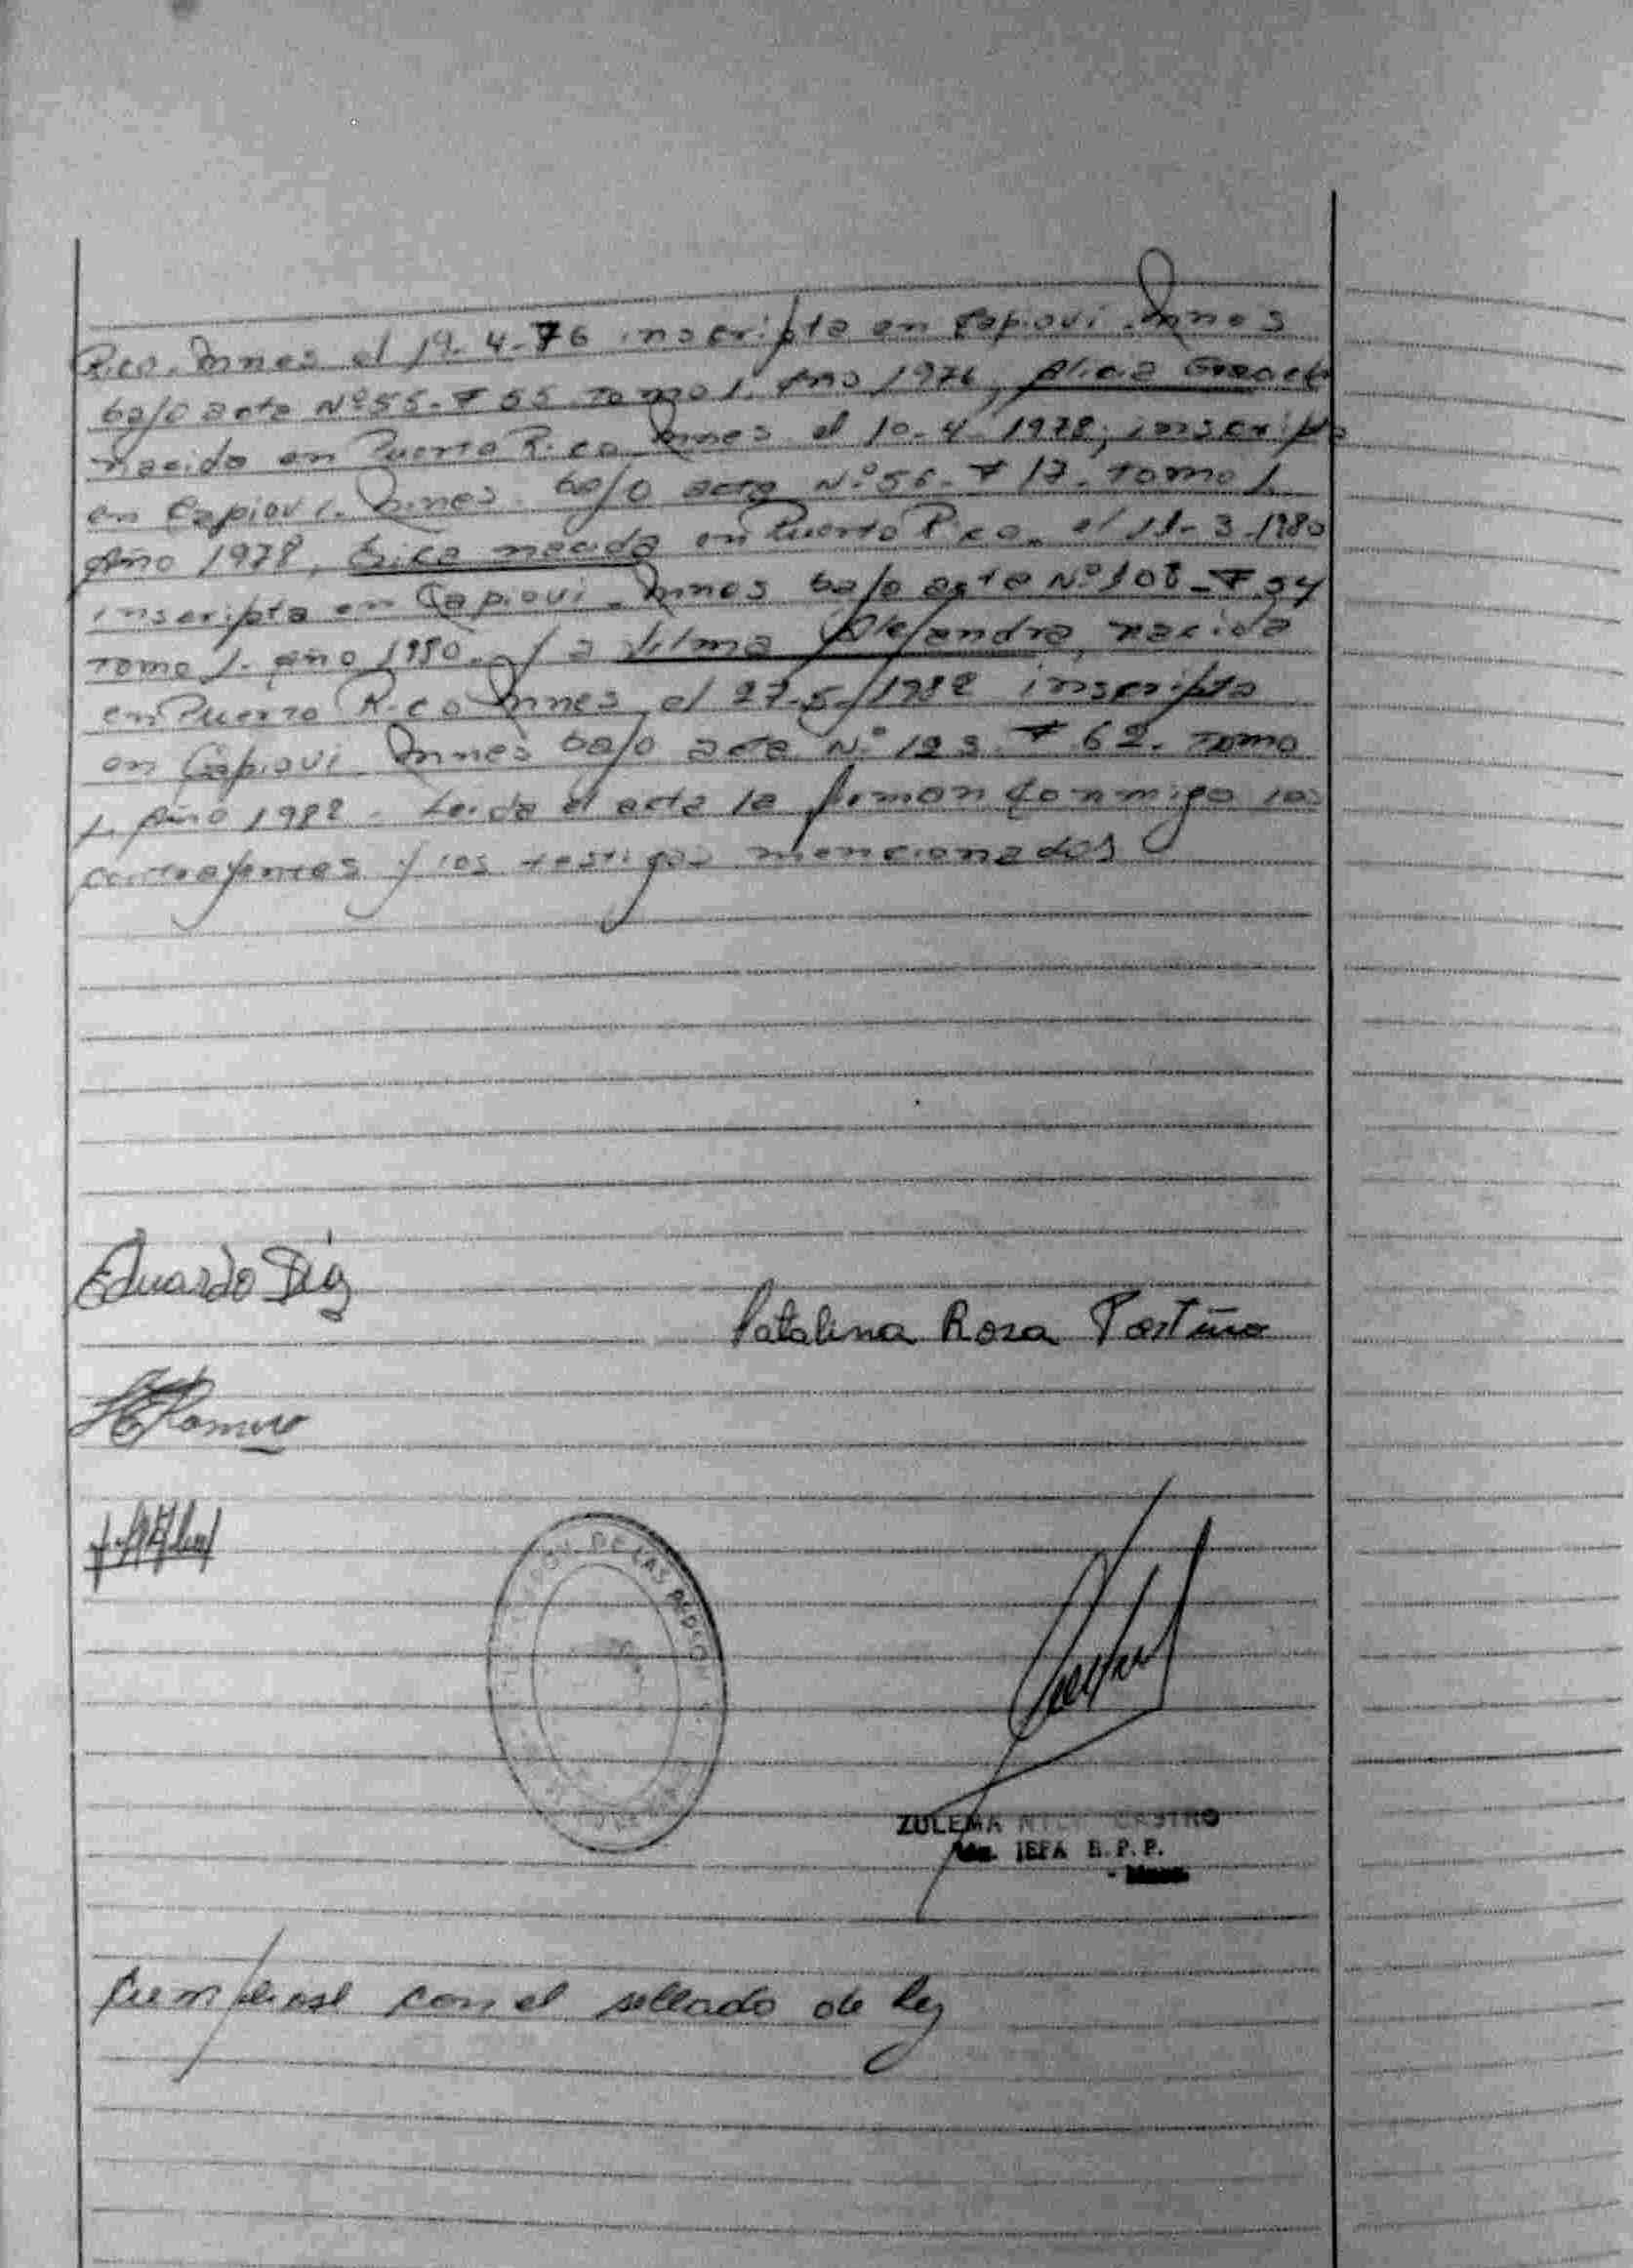 Rico. Mnes el 19-4-76 inscripta en Capiovi. Mnes
bajo acta Nº55-F 55 Tomo 1. Año 1976, Alicia
nacida en Puerto Rico Mnes. el 10-4-1978; inscripta
en Capiovi. Mnes. bajo acta Nº56-F 17. Tomo 1.
Año 1978, Erica nacida en Puerto Rico. el 11-3-1980
inscripta en Capiovi. Mnes bajo acta Nº108-F.54
Tomo 1. año 1980. y a Vilma Alejandra, nacida
en Puerto Rico Mnes el 27-5-1982 inscripta
en Capiovi Mnes bajo acta Nº 123. F 62. Tomo
1. Año 1982. Leida el acta la firman conmigo los
contrayentes y los testigos mencionados
Eduardo Díaz
Catalina Rosa Portiño
Romero
DE LAS PERSONAS
ZULEMA CASTRO
JEFA R. P. P.
Cumplase con el sellado de ley